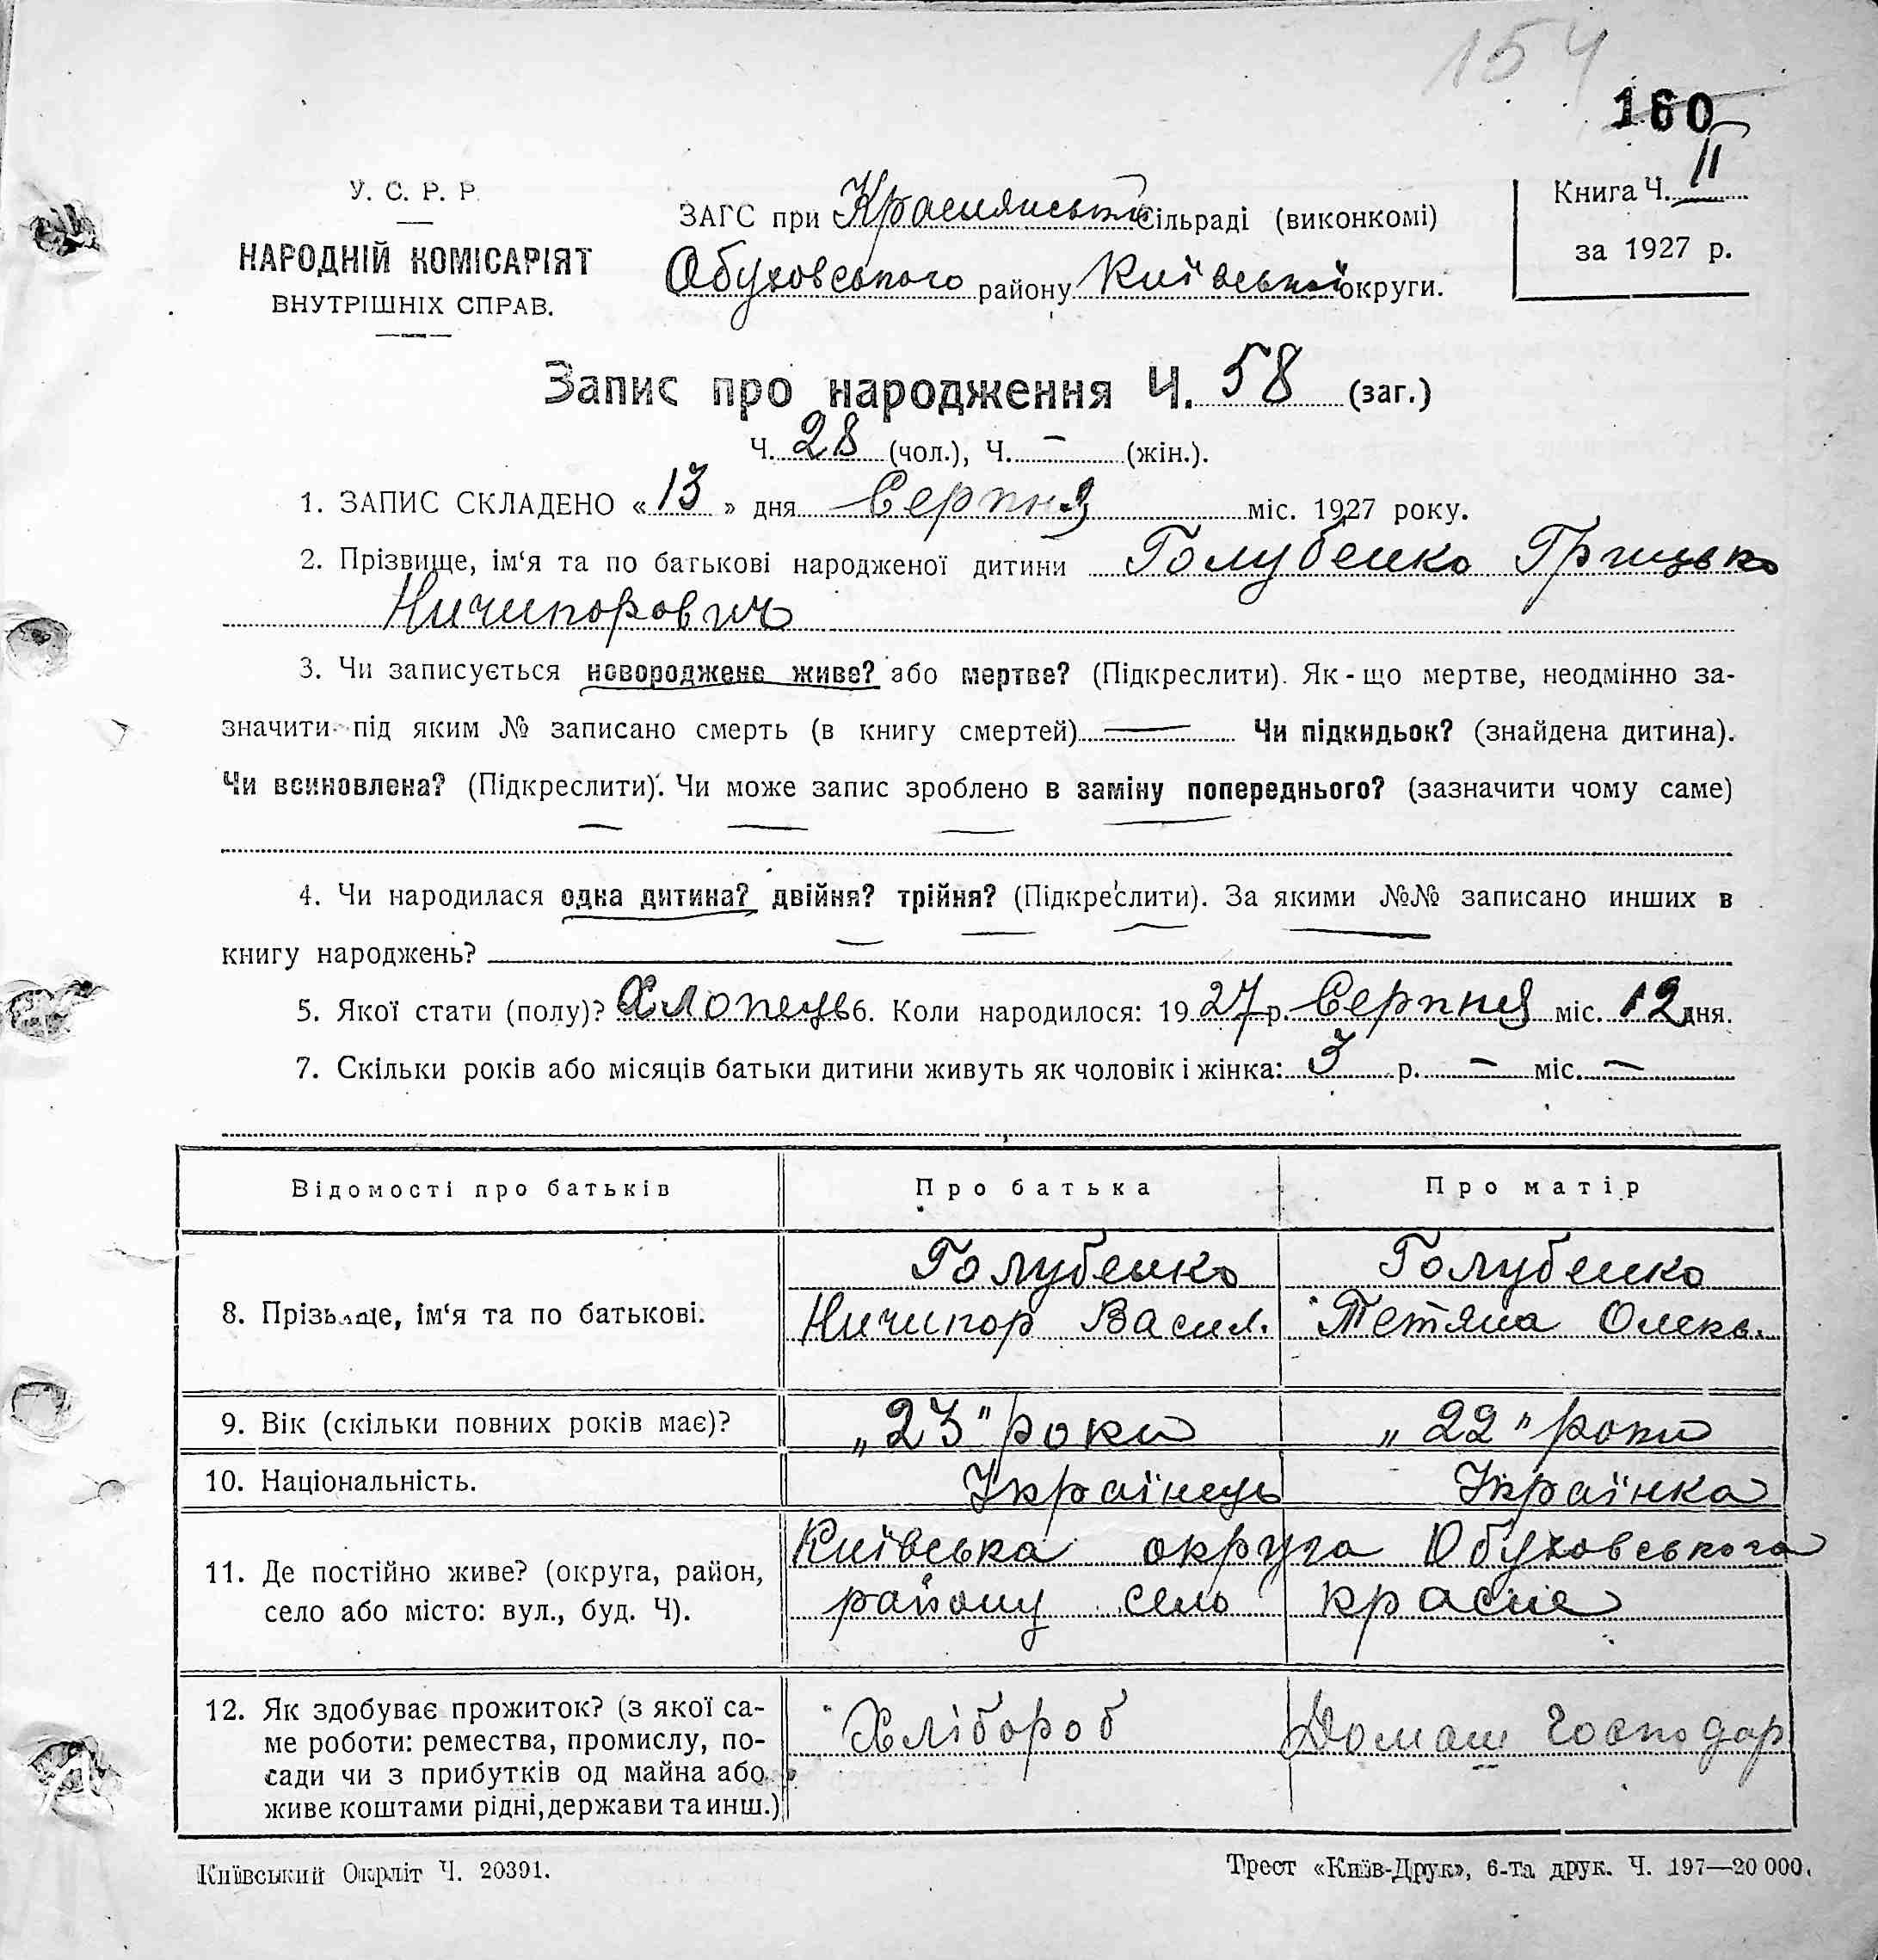 154
160
У. С. Р. Р.
НАРОДНІЙ КОМІСАРІЯТ
ВНУТРІШНІХ СПРАВ.
ЗАГС при Краснянській сільраді (виконкомі)
Обуховського району Київської округи.
Книга Ч. II
за 1927 р.
Запис про народження Ч. 58 (заг.)
Ч. 28 (чол.), Ч. — (жін.).
1. ЗАПИС СКЛАДЕНО «13» дня Серпня міс. 1927 року.
2. Прізвище, ім‘я та по батькові народженої дитини Голубенко Грицько
Ничипорович
3. Чи записується новороджене живе? або мертве? (Підкреслити). Як-що мертве, неодмінно за-
значити під яким № записано смерть (в книгу смертей) — Чи підкидьок? (знайдена дитина).
Чи всиновлена? (Підкреслити). Чи може запис зроблено в заміну попереднього? (зазначити чому саме)
4. Чи народилася одна дитина? двійня? трійня? (Підкреслити). За якими №№ записано инших в
книгу народжень?
5. Якої стати (полу)? Хлопець 6. Коли народилося: 1927 р. Серпня міс. 12 дня.
7. Скільки років або місяців батьки дитини живуть як чоловік і жінка: 3 р. — міс. —
Відомості про батьків Про батька Про матір
8. Прізвище, ім‘я та по батькові. Голубенко Голубенко
Ничипор Васил. Тетяна Олекс.
9. Вік (скільки повних років має)? „23" роки „22" роки
10. Національність. Українець Українка
11. Де постійно живе? (округа, район, Київська округа Обуховського
село або місто: вул., буд. Ч). району село красне
12. Як здобуває прожиток? (з якої са- Хлібороб Домаш господар
ме роботи: ремества, промислу, по-
сади чи з прибутків од майна або
живе коштами рідні, держави та инш.)
Київський Окрліт Ч. 20391.
Трест «Київ-Друк», 6-та друк. Ч. 197—20 000.